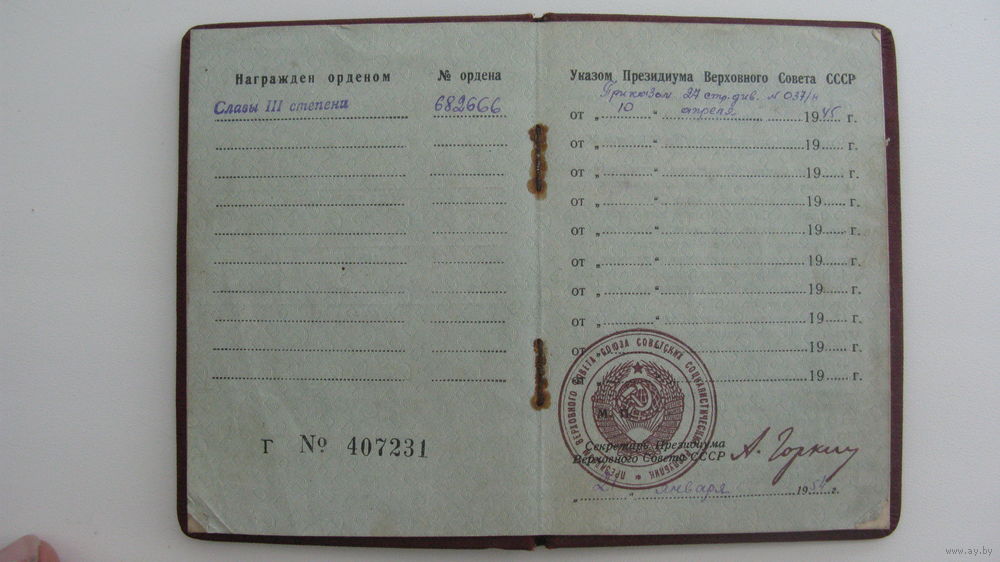 Награжден орденом
№ ордена
Славы III степени
682666
Г № 407231
Указом Президиума Верховного Совета СССР
Приказом 27 стр. див. № 037/н
от „ 10 “ апреля 1945 г.
от „ “ 19 г.
от „ “ 19 г.
от „ “ 19 г.
от „ “ 19 г.
от „ “ 19 г.
от „ “ 19 г.
от „ “ 19 г.
от 19 г.
19 г.
М. П.
СОЮЗА СОВЕТСКИХ СОЦИАЛИСТИЧЕСКИХ
ВЕРХОВНОГО СОВЕТА
Секретарь Президиума
Верховного Совета СССР
А. Горкин
января 19 г.
www.ay.by